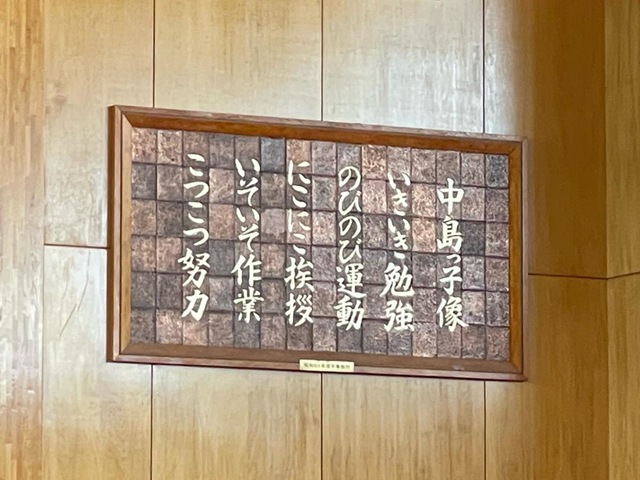 中島っ子像
いきいき勉強
のびのび運動
にこにこ挨拶
いそいそ作業
こつこつ努力